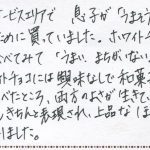 ービスエリアで 息子が「うまそう
ために買っていました。ホワイトチ
べてみて「うまい、まちがいな
トチョコには興味なしで和菓
べたところ、両方のよさが生きて、
しきちんと表現され、上品なほ
しました。